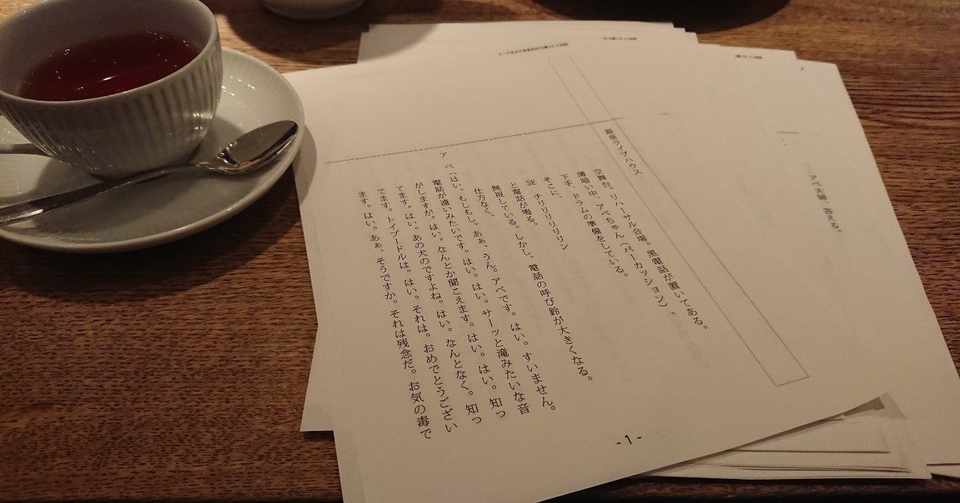 空舞台。リハーサル会場。黒電話が置いてある。
薄暗い中、アベちゃん（パーカッション）、
下手、ドラムの準備をしている。
そこに、
証 チリリリリリン
と電話が鳴る。
無視している。しかし、電話の呼び鈴が大きくなる。
仕方なく、
アベ「はい、もしもし、ああ、うん。アベです。はい。すいません。
電話が遠いみたいです。はい。はい。サーッと滝みたいな音
がしますが。はい。なんとか聞こえます。はい。はい。知っ
てます。はい。あの犬のですよね。はい。なんとなく。知っ
てます。トイプードルは。はい。それは。おめでとうござい
ます。はい。ああ、そうですか。それは残念だ。お気の毒で
- 1 -